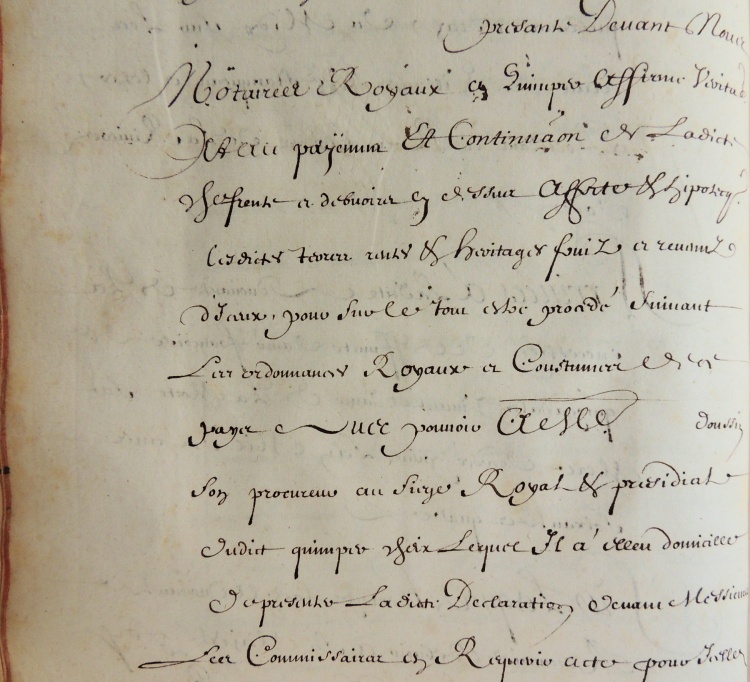 presante Devant Nous
Nottaires Royaux en Quimper Affirme
payemen Et Continuaon de Ladicte
rente et debvoirs cy dessus Affecte & hipotecq
Lesdictes terres rentes & heritages fruitz et revenuz
d'Iceux, pour sur le tout estre procedé suivant
Les ordonnances Royaux et Coustumes de ce
payx Avec pouvoir A
son procureur au siege Royal & presidial
dudict quimper chéix Lequel Il a esleu domicille
De presenter Ladicte Declaration devant Messieurs
Les Commissaires en Requerir acte pour Icelle